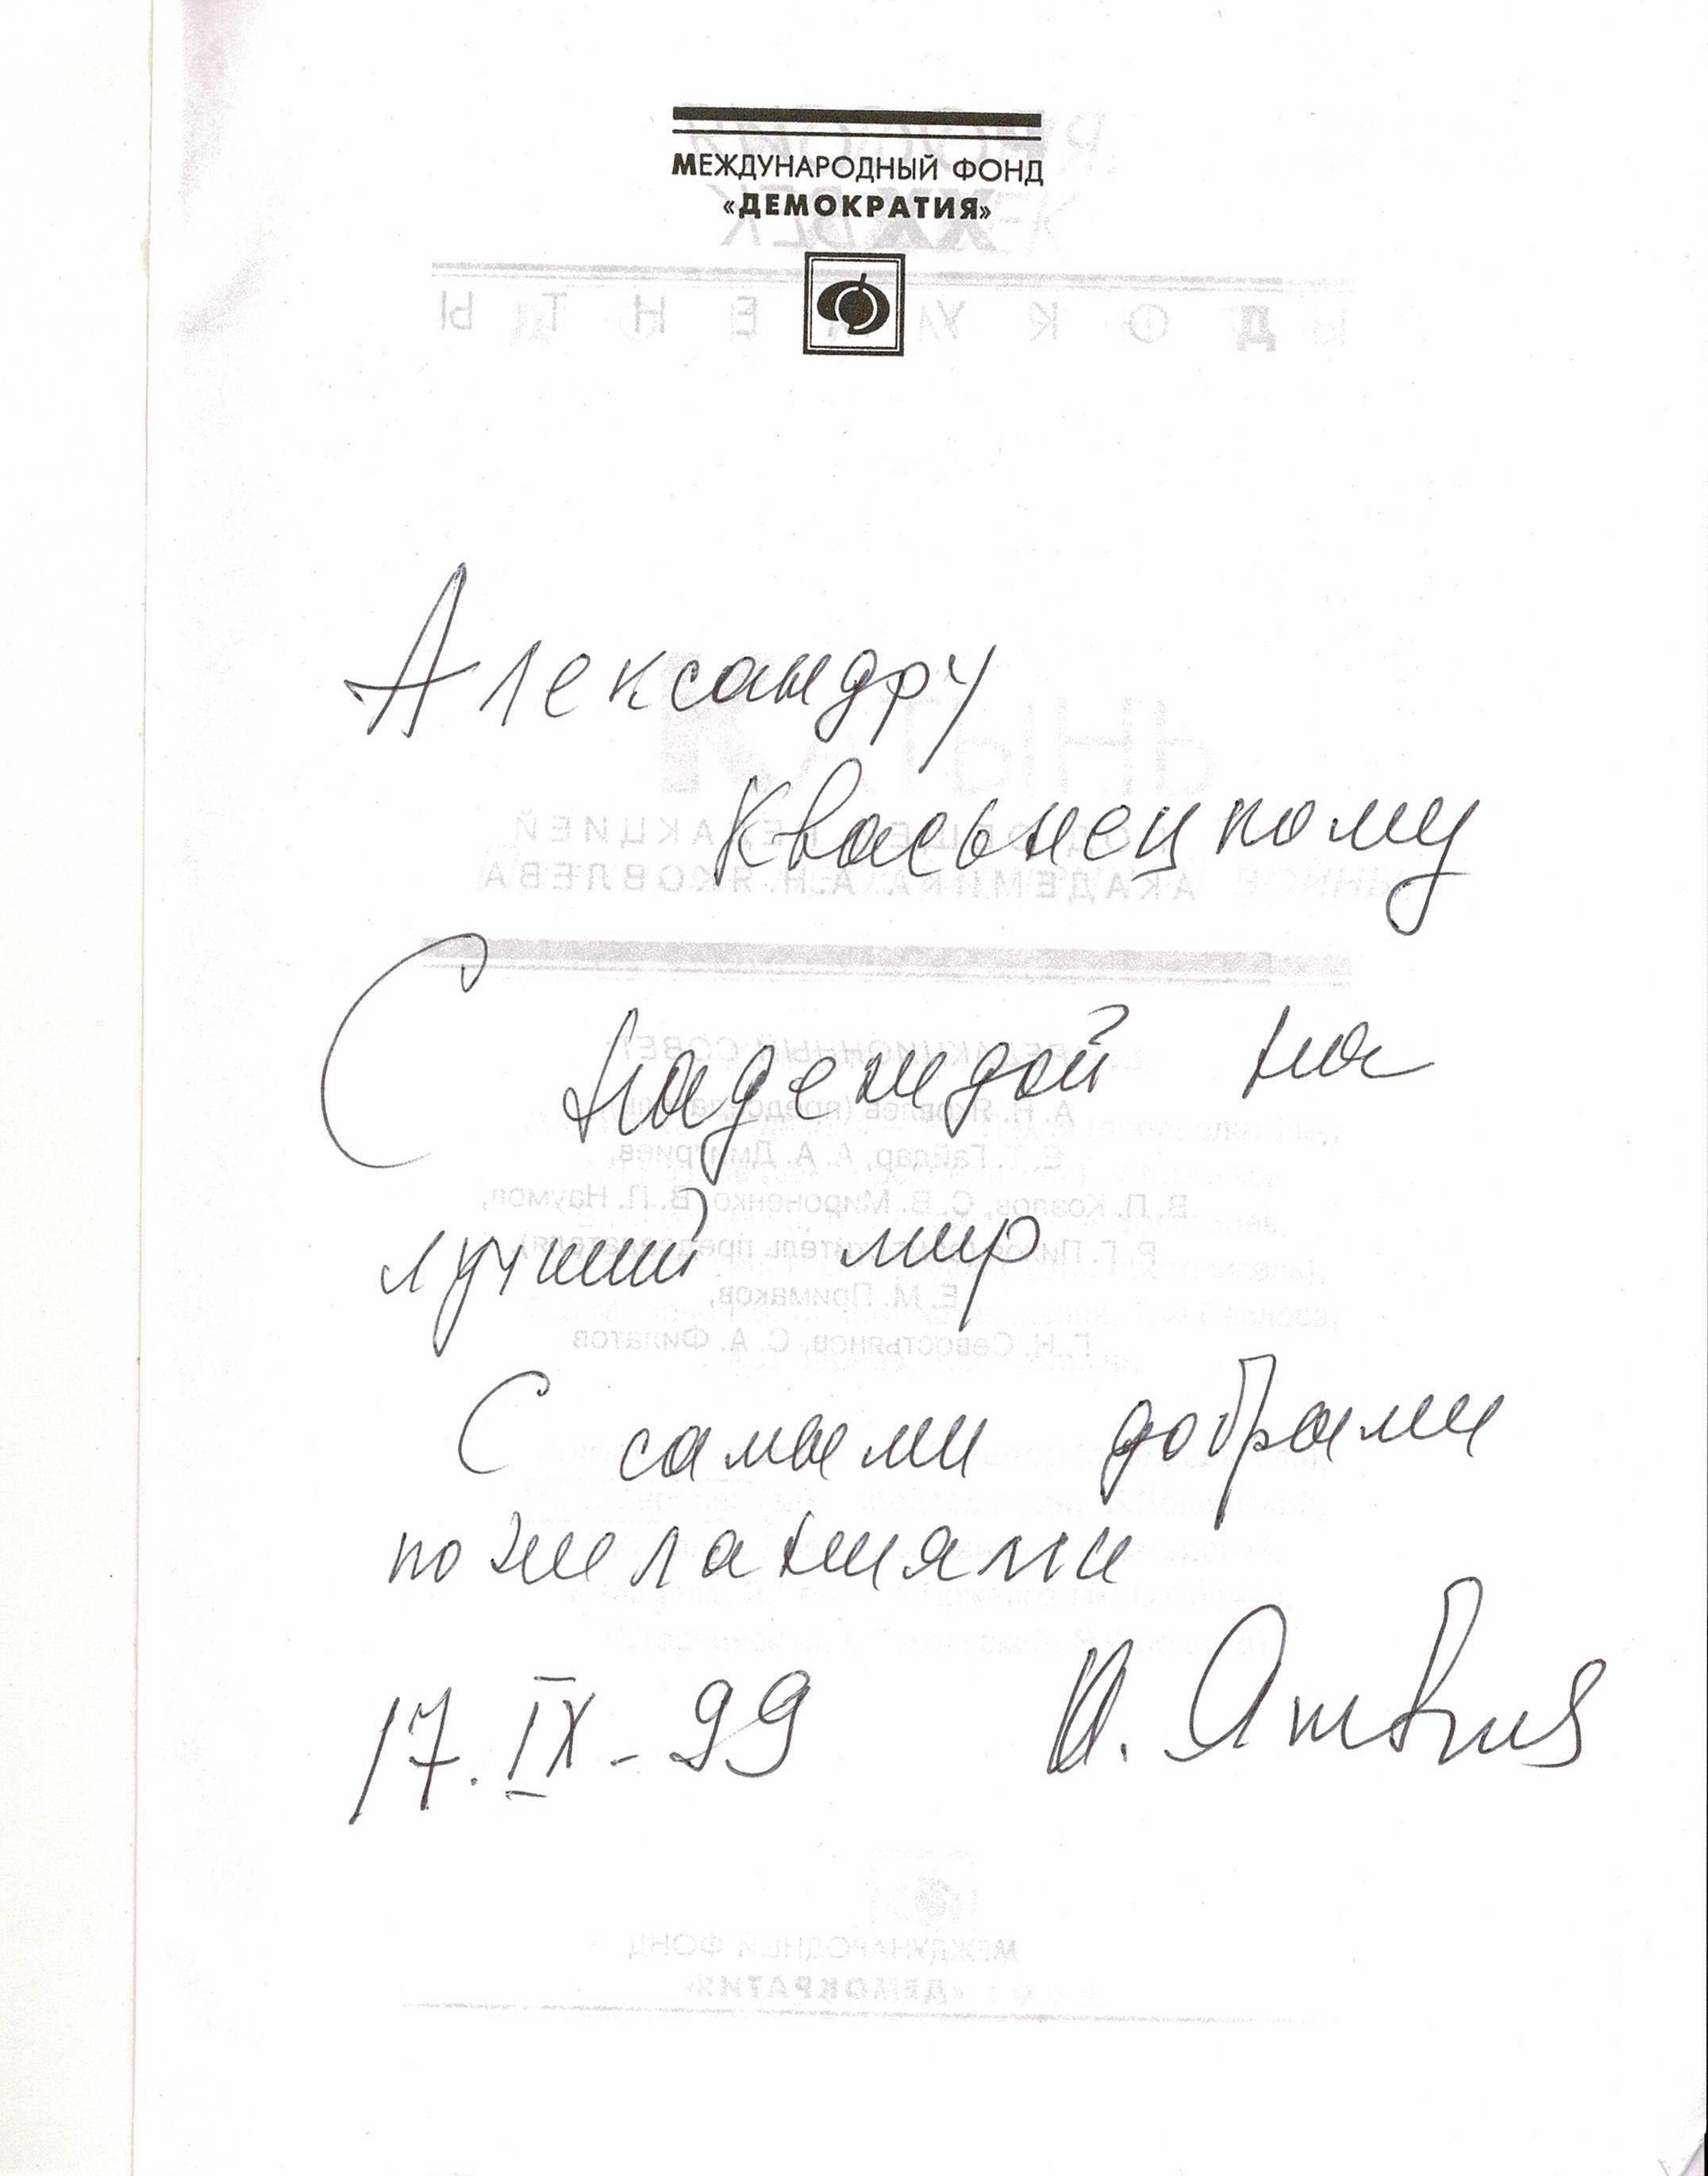 МЕЖДУНАРОДНЫЙ ФОНД
«ДЕМОКРАТИЯ»
Александру
Квасьнецкому
С надеждой на
лучший мир
С самыми добрыми
пожеланиями
17. IX - 99